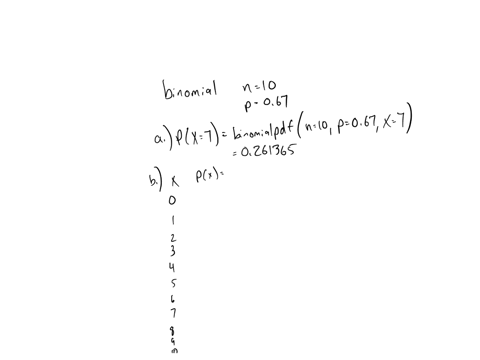 binomial n=10
p=0.67
a.) P(X=7) = binomialpdf(n=10, p=0.67, X=7)
= 0.261365
b.) x P(x)=
0
1
2
3
4
5
6
7
8
9
10